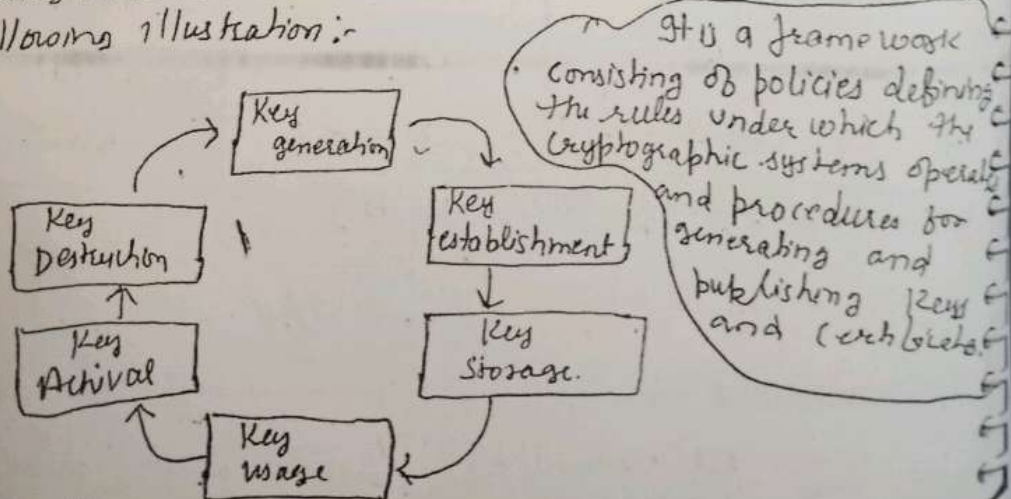 llowing illustration :-
Key
generation
Key
establishment
Key
Storage.
Key
usage
Key
Archival
Key
Destruction
It is a framework
Consisting of policies defining
the rules under which the
Cryptographic systems operate
and procedures for
generating and
publishing Keys
and Certificates.